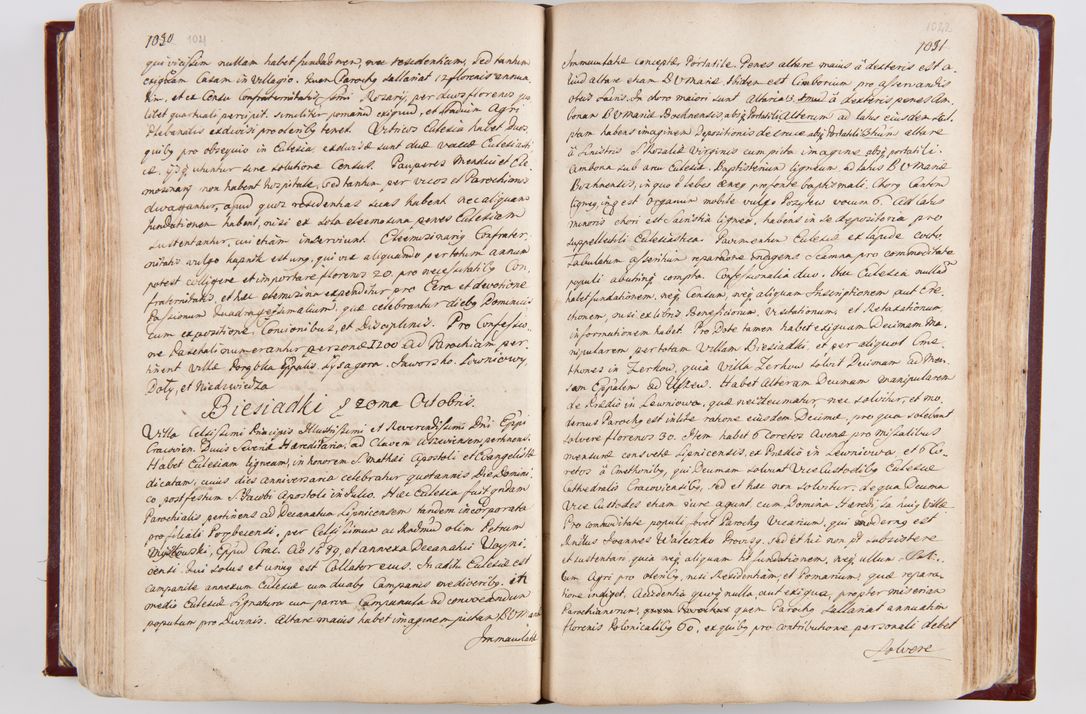 1030 1021
qui vicissim nullam habet fundationem, nec residentiam, sed tantum
exiguam Casam in Villagio. quem Parochq sallariat 12 florenis annua-
tim, et ex Censu Confraternitatis SSmi Rosarij, per duos florenos quo
libet quartuali percipit. similiter pomariũ exiguũ, et stadium Agri
Plebanalis exdivisi pro oleribq tenet. Vitricos Ecclesia habet duos
quibq pro obsequio in Ecclesia, exdivisæ sunt duæ vaccæ Ecclesiasti
cæ, ijsq utuntur sine solutione Census. Pauperes Mendici et Ele
mosinarij non habent hospitale, sed tantum per vicos et Parochianos
divagantur, apud quos residentias suas habent nec aliquam
fundationem habent, nisi ex sola eleemosina penes Ecclesiam
sustentantur, cui etiam inserviunt. Eleemosinariq Confrater-
nitatis vulgo kapnik est unq, qui vix aliquando per totum annum
potest colligere et importare florenos 20. pro necessitatibq Con
fraternitatis, et hæc elemosina expenditur pro Cera et devotione
Passionum Quadragesimalium, quæ celebratur diebq Dominicis
cum expositione, Concionibus, et Disciplinis. Pro Confessio-
ne Paschali numerantur personæ 1200 Ad Parochiam per-
tinent Villæ Porąbka Eppalis, Łysagora. Jaworsko. Łowniowy,
Doły, et Niedzwiedza
Biesiadki 20ma Octobris.
Villa Celsissimi Principis Illustrissimi et Reverendissimi Dni Eppi
Cracovien. Ducis Severiæ Hæreditaria, ad Clavem Uszeviensem, pertinens.
Habet Ecclesiam ligneam, in honorem S. Mathæi Apostoli et Evangelistæ
dicatam, cuius dies anniversaria celebratur quotannis Die Domini
co post festum S. Jacobi Apostoli in Julio. Hæc Ecclesia fuit qndam
Parochialis pertinens ad Decanatum Lipnicensem tandem incorporata
pro filiali Porębensi, per Celsissimum ac Rndmũ olim Petrum
Myszkowski, Eppũ Crac. Aõ 1589, et annexa Decanatui Voyni
censi. Qui solus et unicq est Collator eius. In aditu Ecclesiæ est
campanile annexum Ecclesiæ cum duabq Campanis mediocribq. in
medio Ecclesiæ Signatura cum parva Campanula ad convocandum
populum pro Divinis. Altare maius habet imaginem pictam B.V. Mariæ
Immaculatæ
1022
1031
Immaculatæ conceptæ, Portatile. Penes altare maius â dexteris est a-
liud altare etiam BVMariæ. Ibidem est Ciborium pro asservandis
oleis sacris. In choro maiori sunt Altaria 3. â dexteris penes Am-
bonam BVMariæ Bochnensis, absq Portatili, Alterum ad latus eiusdem scul
ptam habens imaginem Depositionis de cruce absq Portatili. Etiam altare
â sinistris S. Rosaliæ Virginis cum picta imagine absq portatili.
Ambona sub arcu Ecclesiæ. Baptisterium ligneum, ad latus BVMariæ
Bochnensis, in quo ê lebes æneq pro fonte baptismali. Chorq Cantorũ
ligneq, in q est Organum mobile vulgo Pozytew vocum 6. Ad latus
minoris chori est Sacristia lignea, habens in se depositoria pro
suppellectili Ecclesiastica Pavimentum Ecclesiæ ex lapide cocto,
tabulatum asseritium reparatione indigens Scamna pro commoditate
populi abunde compta. Confessionalia duo. Hæc Ecclesia nullã
habet fundationem, neq Censum, neq aliquam Inscriptionem aut Ere-
ctionem, nisi ex libris Beneficiorum, Visitationum, et Retaxationum
informationem habet. Pro Dote tamen habet exiguam Decimam Ma-
nipularem per totam Villam Biesiadki, et per aliquot Cme-
thones in Zerkow, quia Villa Zerkow solvit Decimam ad Men-
sam Eppalem ad Uszew. Habet Alteram Decimam manipularem
de Prædio in Lewniowa, quæ nec Decimatur, nec solvitur, et mo
dernus Parochq est in lite ratione eiusdem Decimæ, pro qua solebant
solvere florenos 30. Item habet 6 coretos Avenæ pro missalibus
mensuræ consvetæ Lipnicensis, ex Prædio in Lewniowa, et 6 Co-
retos â Cmethonibq, qui Decimam solvunt Vice Custodibq Ecclesiæ
Cathedralis Cracoviensibq, sed et hæc non solvitur. de qua Decima
Vice Custodes etiam iure agunt cum Domina Hærediaria huiq Villæ
Pro commoditate populi fovet Parochq Vicarium, qui modernq est
Andus Joannes Waleczko Provisq. sed et hic non pt subsistere
et sustentari quia neq aliquam hṫ fundationem, neq ullum Fun-
dum Agri pro oleribq, nisi Residentiam, et Pomarium, quæ repara-
tione indiget. Accidentia quoq nulla, aut exigua, propter miseriam
Parochianorum, quem Parochus sallariat annuatim
florenis Polonicalibq 60, ex quibq pro contributione personali debet
solvere